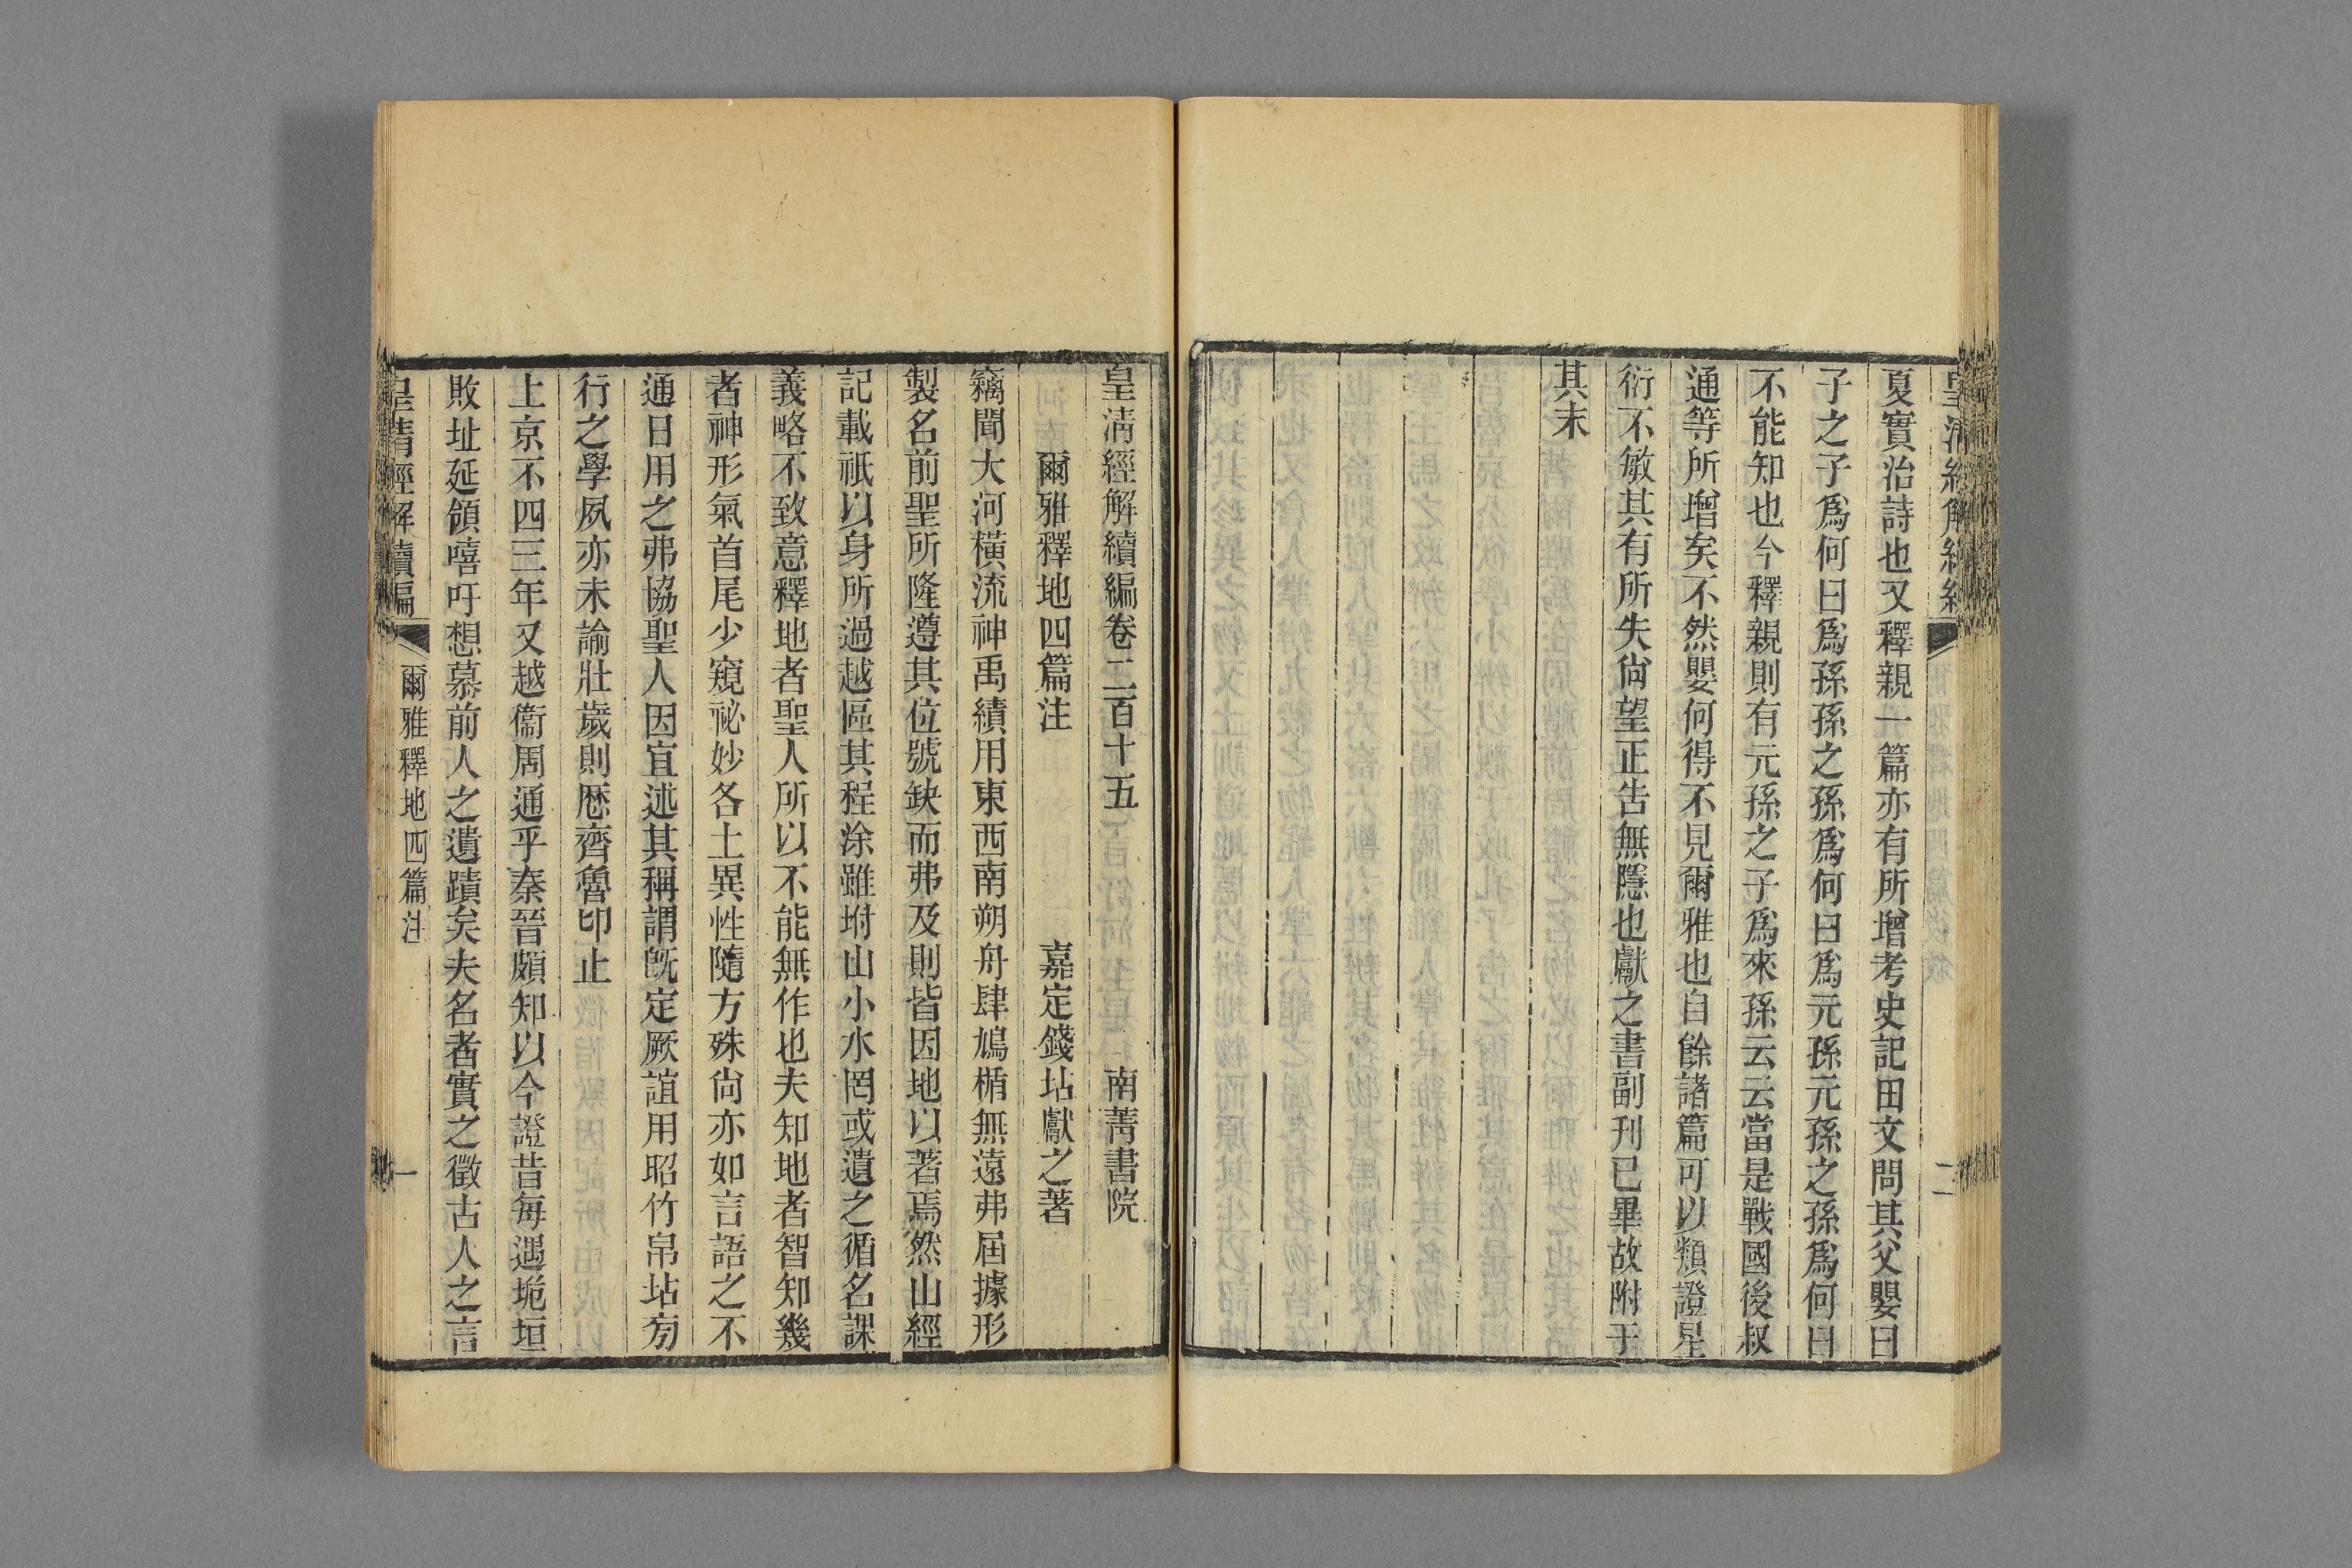 夏實治詩也又釋親一篇亦有所增考史記田文問其父嬰曰
子之子爲何曰爲孫孫之孫爲何曰爲元孫元孫之孫爲何曰
不能知也今釋親則有元孫之子爲來孫云云當是戰國後叔
通等所增矣不然嬰何得不見爾雅也自餘諸篇可以類證星
衍不敏其有所失尙望正告無隱也獻之書副刊已畢故附于
其末
二
皇淸經解續編卷二百十五
南菁書院
爾雅釋地四篇注
嘉定錢坫獻之著
竊聞大河橫流神禹績用東西南朔舟肆鳩楯無遠弗屆據形
製名前聖所隆遵其位號缺而弗及則皆因地以著焉然山經
記載祇以身所過越區其程涂雖坿山小水罔或遺之循名課
義略不致意釋地者聖人所以不能無作也夫知地者智知幾
者神形氣首尾少窺祕妙各土異性隨方殊尙亦如言語之不
通日用之弗協聖人因宜述其稱謂旣定厥誼用昭竹帛坫㫄
行之學夙亦未諭壯歲則歷齊魯卬止
上京不四三年又越衞周通乎秦晉頗知以今證昔每遇垝垣
敗址延領嘻吁想慕前人之遺蹟矣夫名者實之徵古人之言
皇淸經解續編
爾雅釋地四篇注
一